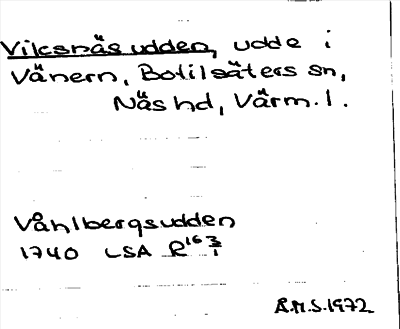 Vilcsnäsudden, udde i
Vänern, Botilsäters sn,
Näs hd, Värm. l.
Våhlbergsudden
1740 LSA R 16 3/1
Å.M.S. 1972